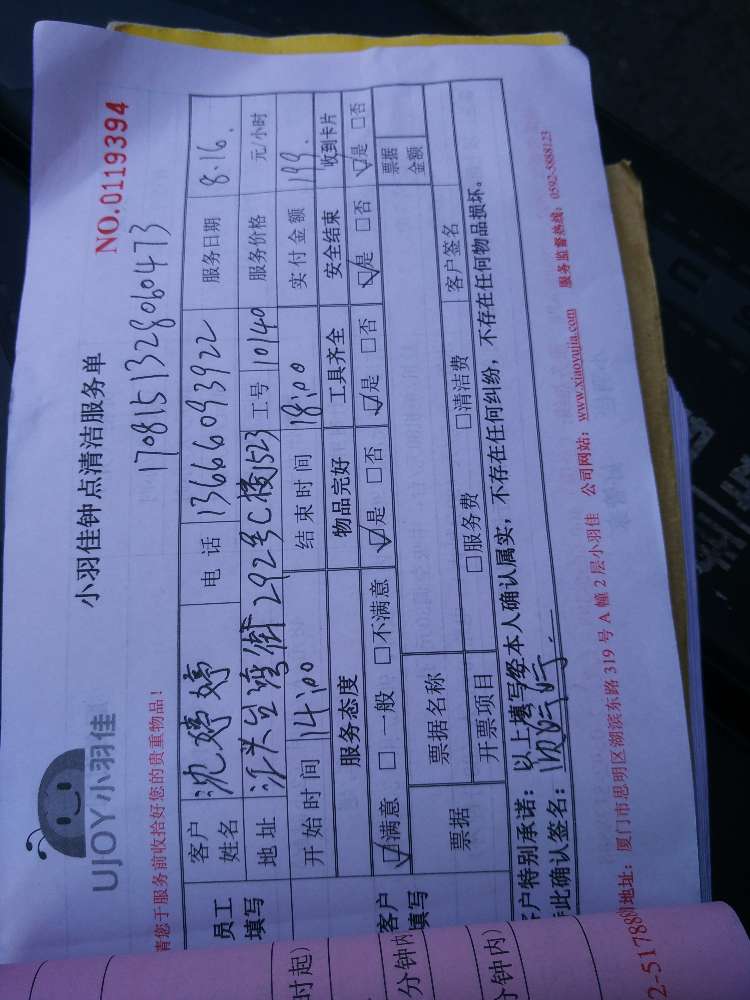 UJOY小羽佳
小羽佳钟点清洁服务单
NO.0119394
1708151328060473
请您于服务前收拾好您的贵重物品！
员工填写
客户姓名 沈婷婷 电话 13666093922 服务日期 8.16.
地址 292号C楼1523 工号 10140 服务价格 元/小时
开始时间 14:00 结束时间 18:00 实付金额 149.
客户填写
服务态度 物品完好 工具齐全 安全结束 收到卡片
☑满意 □一般 □不满意 ☑是 □否 ☑是 □否 ☑是 □否 ☑是 □否
票据 票据名称 票据金额
开票项目 □服务费 □清洁费 客户签名
客户特别承诺：以上填写经本人确认属实，不存在任何纠纷，不存在任何物品损坏。
特此确认签名：
2-5178888 地址：厦门市思明区湖滨东路319号A幢2层小羽佳 公司网站：www.xiaoyujia.com 服务监督热线：0592-5888123
时起）
分钟内
分钟内）